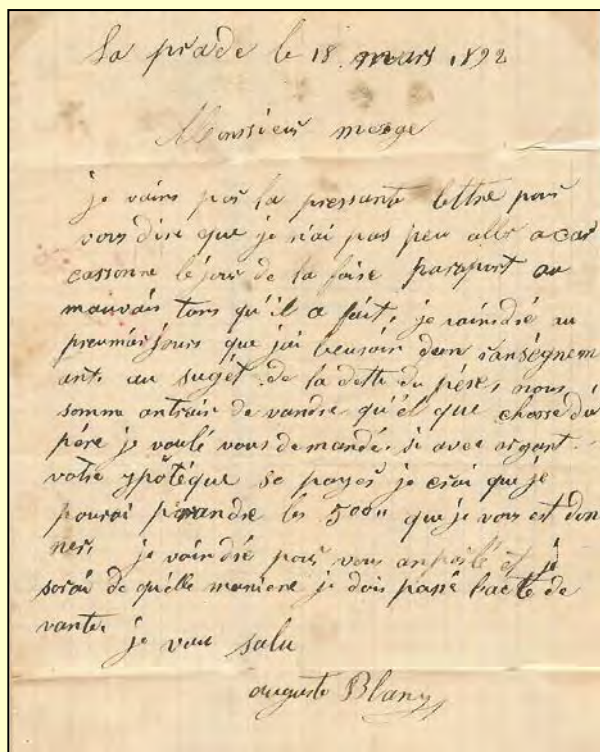 La prade le 18 mars 1892
Monsieur
je vains par la pressante lettre pour
vous dire que je n'ai pas peu aller a car
cassonne le jour de la foire paraport au
mauvais tans qu'il a fait, je vaindré un
preumier jours que j'ai beusoin d'un ranségnem
ant. au sugét de la dette du pére, nous
somme antrain de vandre qu'él que chosse du
pére je voulé vous demandé. si avec argant
votre ypotéque se payer je crai que je
pourai prrandre les 500 que je vous est don
ner, je vaindré pour vous anparlé et je
sorai de quélle maniere je dois passé l'acte de
vante.
je vous salu
auguste Blanq